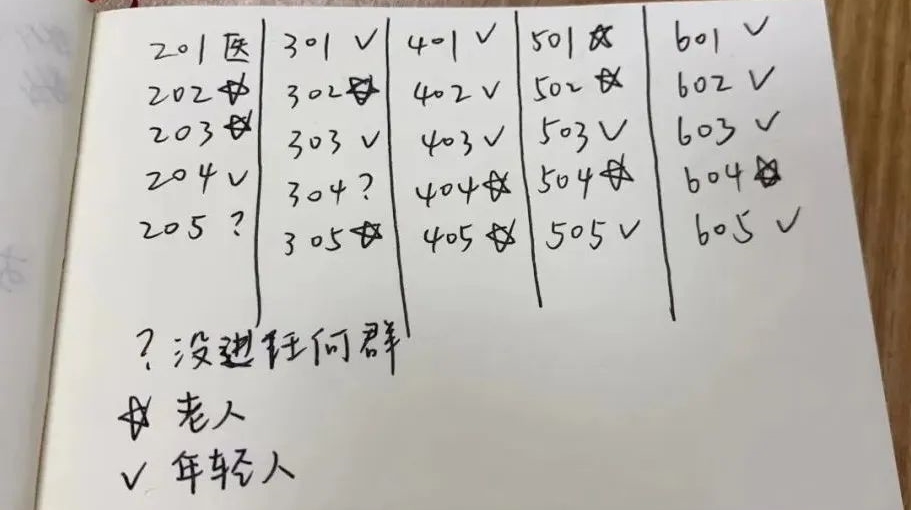 201 医 301 ✓ 401 ✓ 501 ☆ 601 ✓
202 ☆ 302 ☆ 402 ✓ 502 ☆ 602 ✓
203 ☆ 303 ✓ 403 ✓ 503 ✓ 603 ✓
204 ✓ 304 ? 404 ☆ 504 ☆ 604 ☆
205 ? 305 ☆ 405 ☆ 505 ✓ 605 ✓
? 没进任何群
☆ 老人
✓ 年轻人